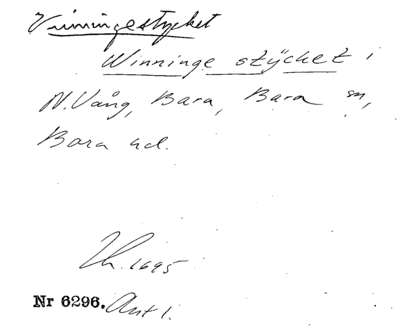 Vinningestycket
Winninge stÿcket i
N. Vång, Bara, Bara sn,
Bara hd.
Lh. 1695
Nr 6296. Akt 1.